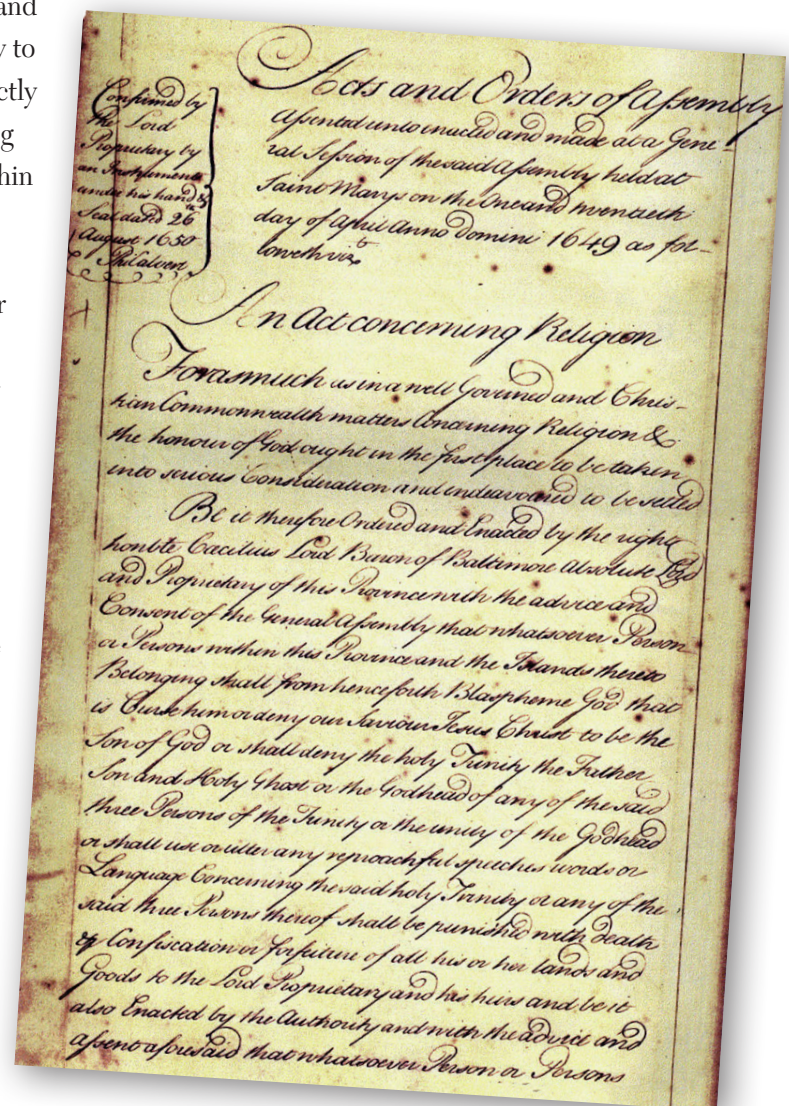 and
y to
ctly
g
hin
r
Confirmed by
the Lord
Proprietary by
an Instrument
under his hand &
Seal dated 26th
August 1650
Phil: Calvert
Acts and Orders of Assembly
assented unto enacted and made at a Gene-
ral Session of the said Assembly held at
Saint Marys on the One and twentieth
day of April Anno Domini 1649 as fol-
loweth vizt
An Act concerning Religion
Forasmuch as in a well Governed and Chris-
tian Commonwealth matters Concerning Religion &
the honour of God ought in the first place to be taken
into serious Consideration and endeavoured to be settled
Be it therefore Ordered and Enacted by the right
honble Cæcilius Lord Baron of Baltimore Absolute Lord
and Proprietary of this Province with the advice and
Consent of the General Assembly that whatsoever Person
or Persons within this Province and the Islands thereto
Belonging shall from henceforth Blaspheme God that
is Curse him or deny our Saviour Jesus Christ to be the
Son of God or shall deny the holy Trinity the Father
Son and Holy Ghost or the Godhead of any of the said
three Persons of the Trinity or the unity of the Godhead
or shall use or utter any reproachful speeches words or
Language Concerning the said holy Trinity or any of the
said three Persons thereof shall be punished with death
& Confiscation or forfeiture of all his or her lands and
Goods to the Lord Proprietary and his heirs and be it
also Enacted by the Authority and with the advice and
assent aforesaid that whatsoever Person or Persons